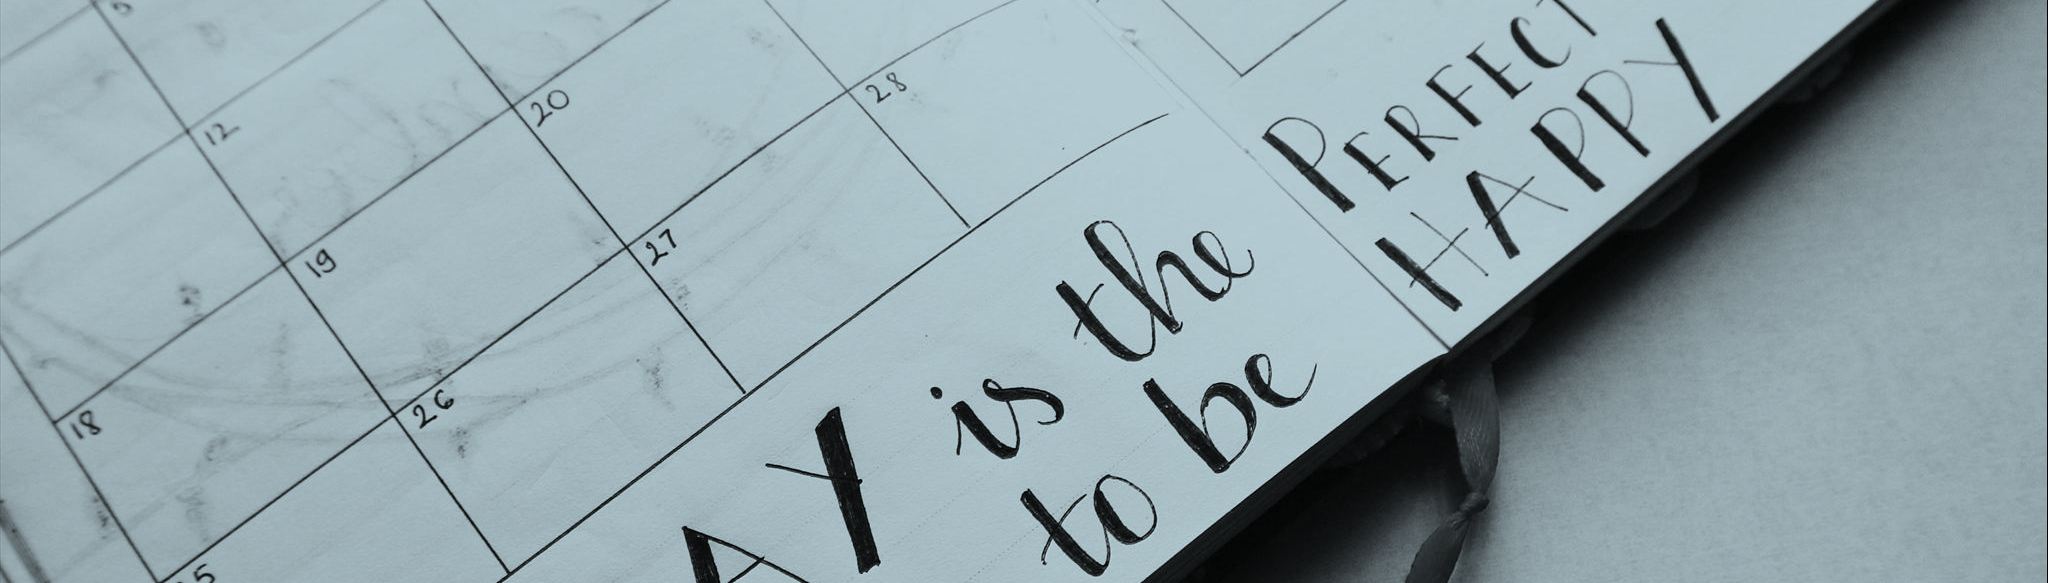 5
12
20
28
19
27
18
26
AY is the PERFECT
to be HAPPY